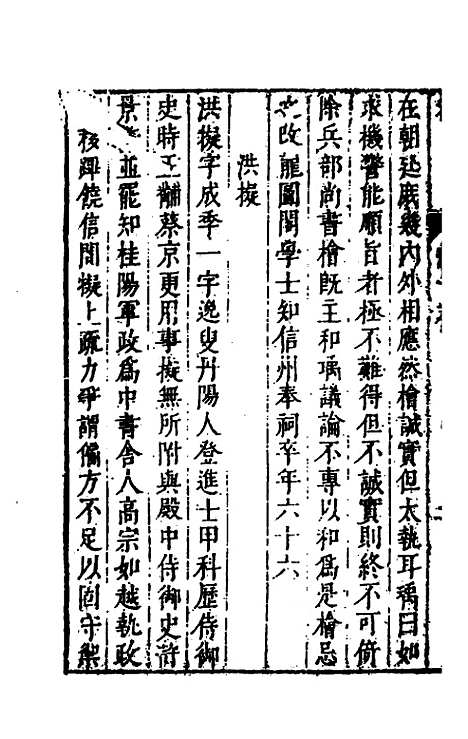 在朝廷庶幾內外相應然檜誠實但太執耳瑀曰如
求機警能順旨者極不難得但不誠實則終不可倚
除兵部尚書檜旣主和瑀議論不專以和爲是檜忌
之改龍圖閣學士知信州奉祠卒年六十六
洪擬
洪擬字成季一字逸叟丹陽人登進士甲科歷侍御
史時王黼蔡京更用事擬無所附與殿中侍御史許
景 並罷知桂陽軍政爲中書舍人高宗如越執政
移蹕饒信間擬上疏力爭謂偏方不足以固守